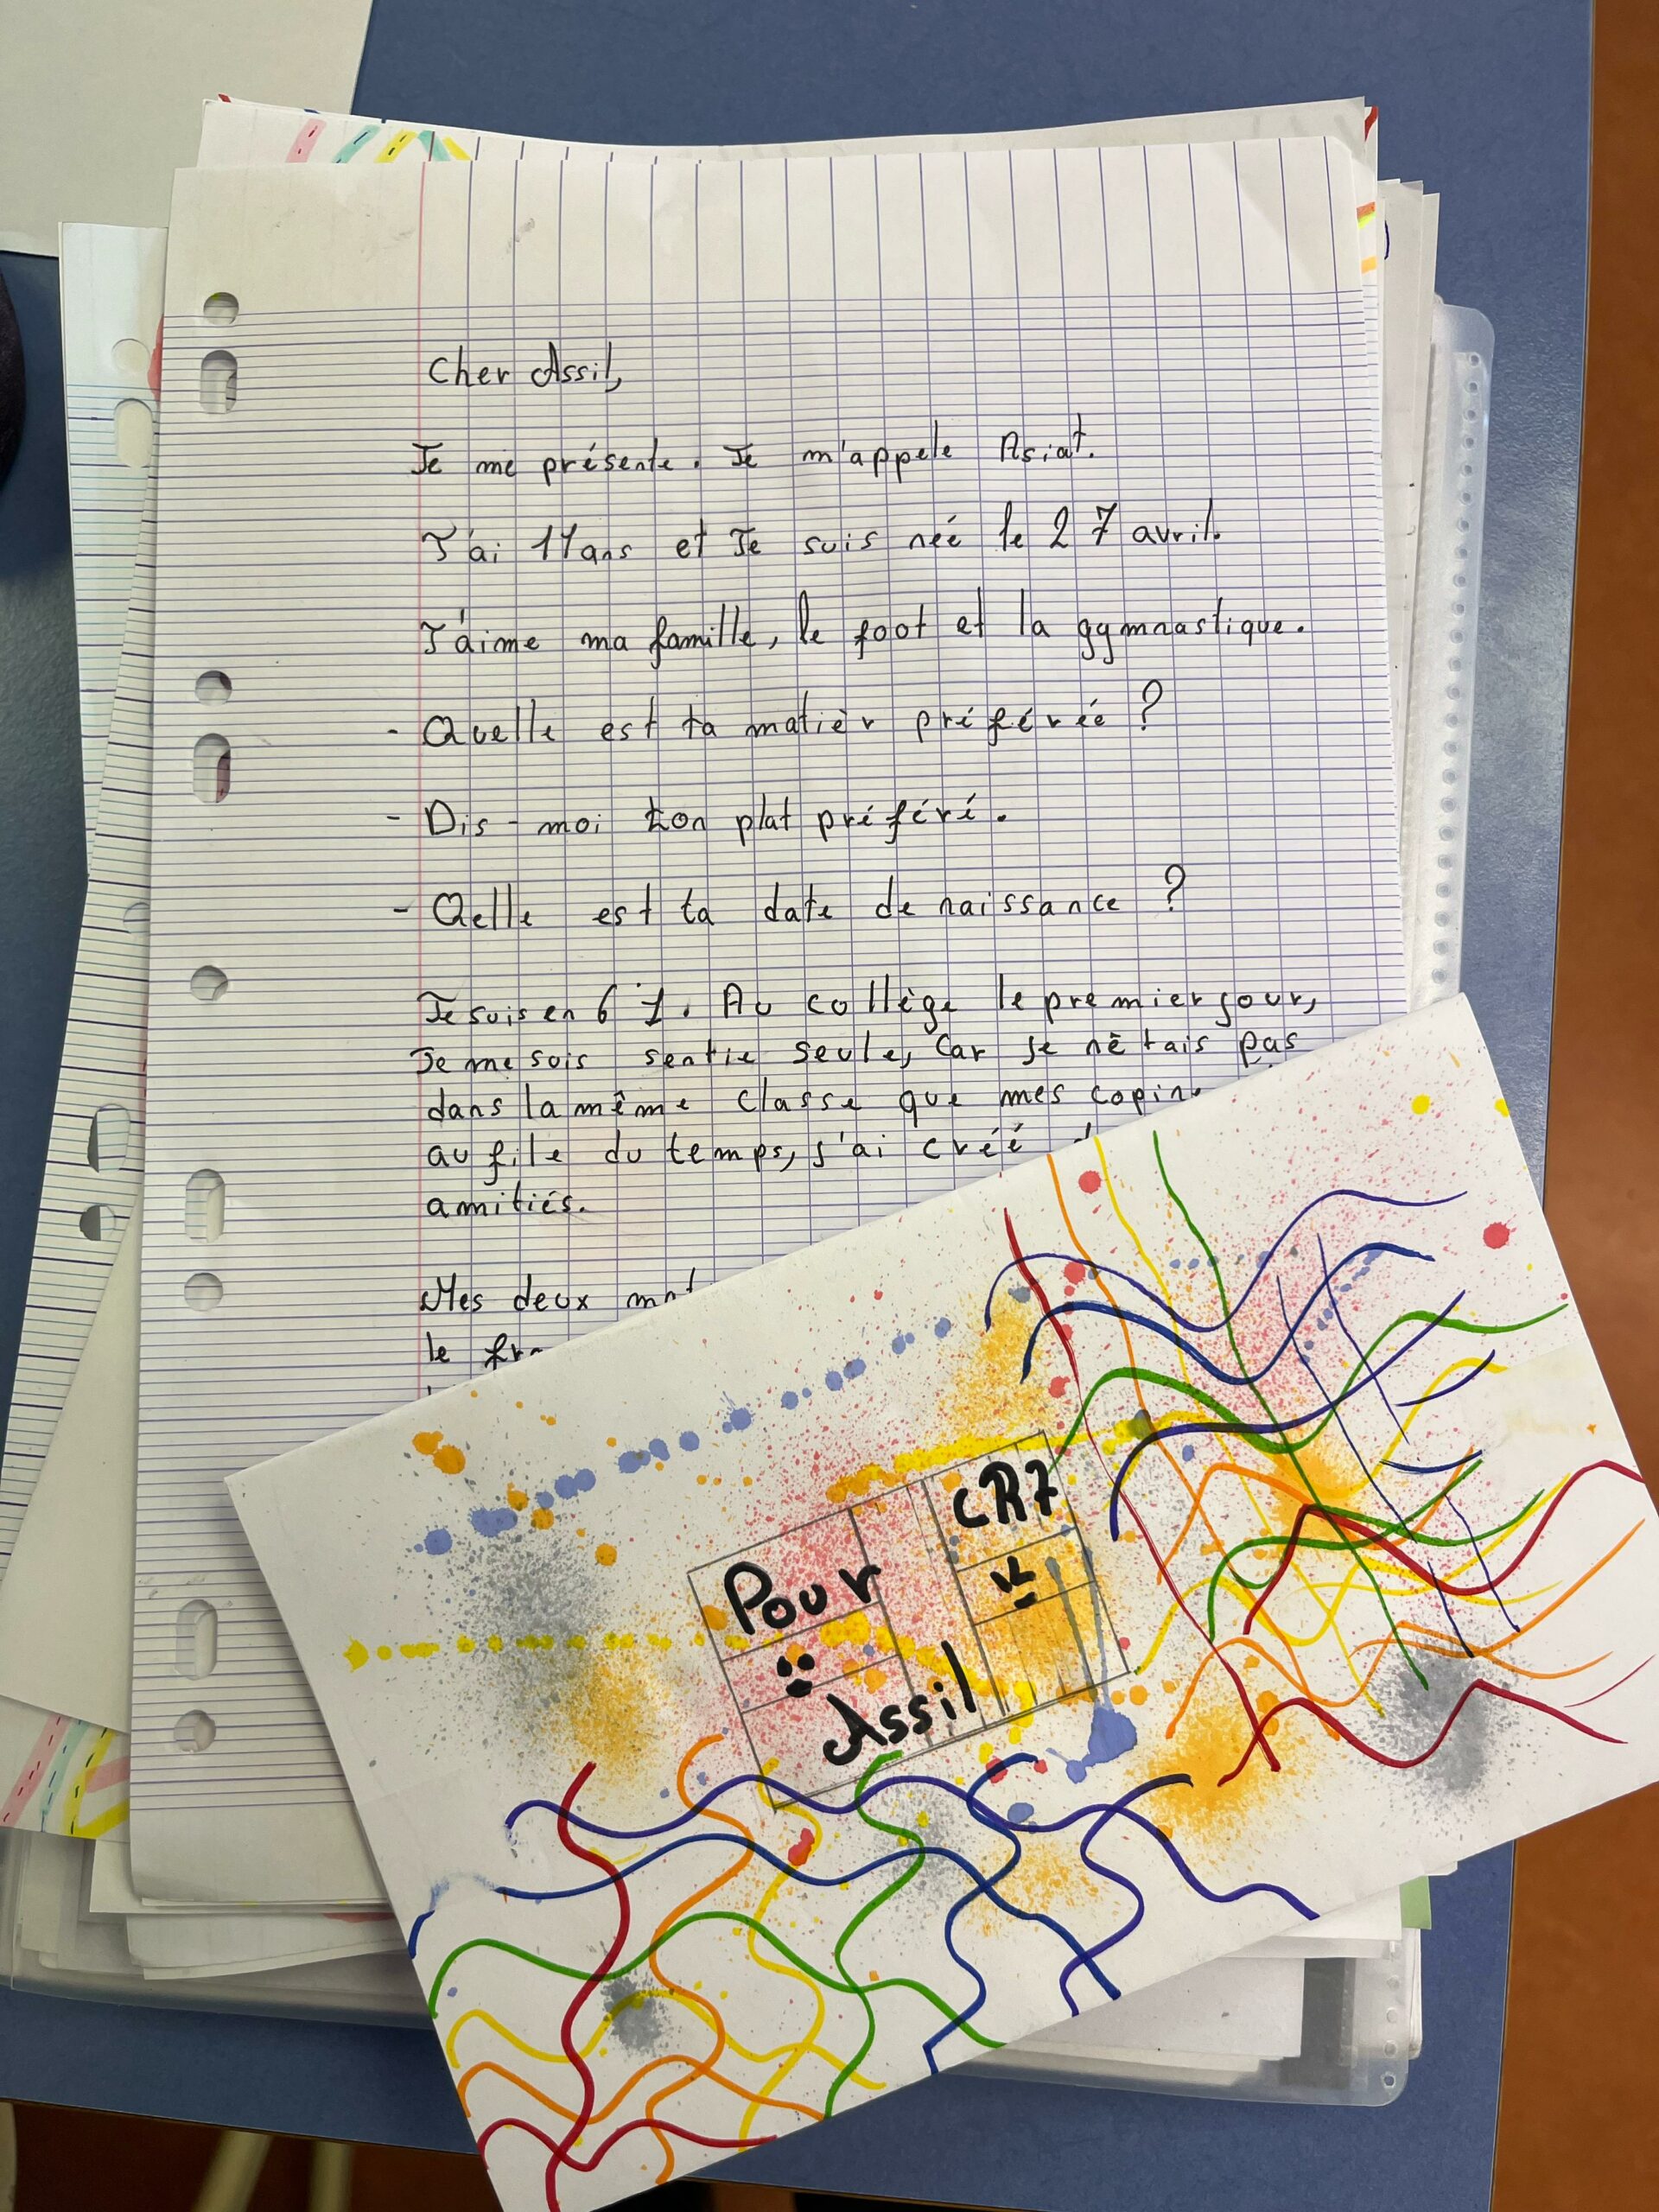 Cher Assil,
Je me présente. Je m'appele Asiat.
J'ai 11 ans et Je suis née le 27 avril.
J'aime ma famille, le foot et la gymnastique.
- Quelle est ta matièr préférée ?
- Dis-moi ton plat préféré.
- Qelle est ta date de naissance ?
Je suis en 6 1. Au collège le premier jour,
Je me suis sentie seule, car je nêtais pas
dans la même classe que mes
au file du temps, j'ai créé
amitiés.
Mes deux
le
CR7
Pour
:
Assil